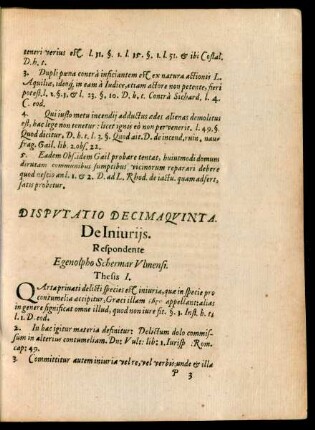 teneri verius est l. 31. §. 1. l. 35. §. 1. l. 51. & ibi Costal.
D. h. t.
3. Dupli pœna contrà inficiantem est ex natura actionis L.
Aquiliæ, ideoq́; in eam à Iudice, etiam actore non petente, fieri
potest. l. 2. §. 1. & l. 23. §. 10. D. h. t. Contrà Sichard. l. 4.
C. eod.
4. Qui iusto metu incendij adductus ædes alienas demolitus
est, hac lege non tenetur: licet ignis eò non pervenerit. l. 49. §.
Quod dicitur. D. h. t. l. 3. §. Quod ait. D. de incend. ruin. nau-
frag. Gail. lib. 2. obs. 22.
5. Eadem Obs. idem Gail probare tentat, huiusmodi domum
dirutam communibus sumptibus vicinorum reparari debere
quod nescio an l. 1. & 2. D. ad L. Rhod. de iactu. quam adfert,
satis probetur.
DISPVTATIO DECIMAQVINTA.
De Iniurijs.
Respondente
Egenolpho Schermar Vlmensi.
Thesis I.
QVarta privati delicti species est iniuria, quæ in specie pro
contumelia accipitur, Græci illam appellant: aliàs
in genere significat omne illud, quod non iure fit. §. 1. Inst. h. t.
l. 1. D. eod.
2. In hac igitur materia definitur: Delictum dolo commis-
sum in alterius contumeliam. Dn: Vult: lib: 1. Iurisp. Rom.
cap: 49.
3. Committitur autem iniuria vel re, vel verbis: unde & illa
P 3